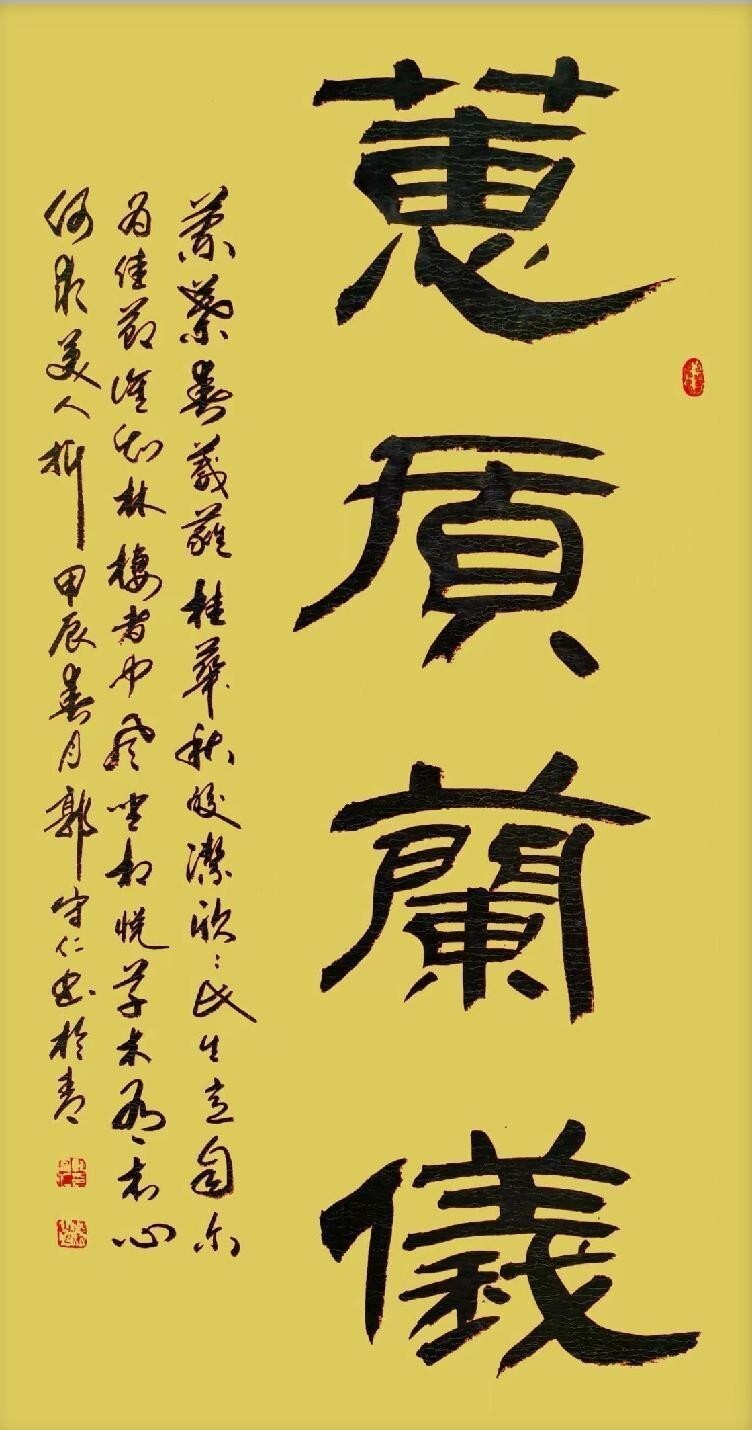 蕙質蘭儀
蘭葉春葳蕤桂華秋皎潔欣欣此生意自尔
为佳節誰知林棲者聞風坐相悦草木有本心
何求美人折甲辰春月郭守仁書於青